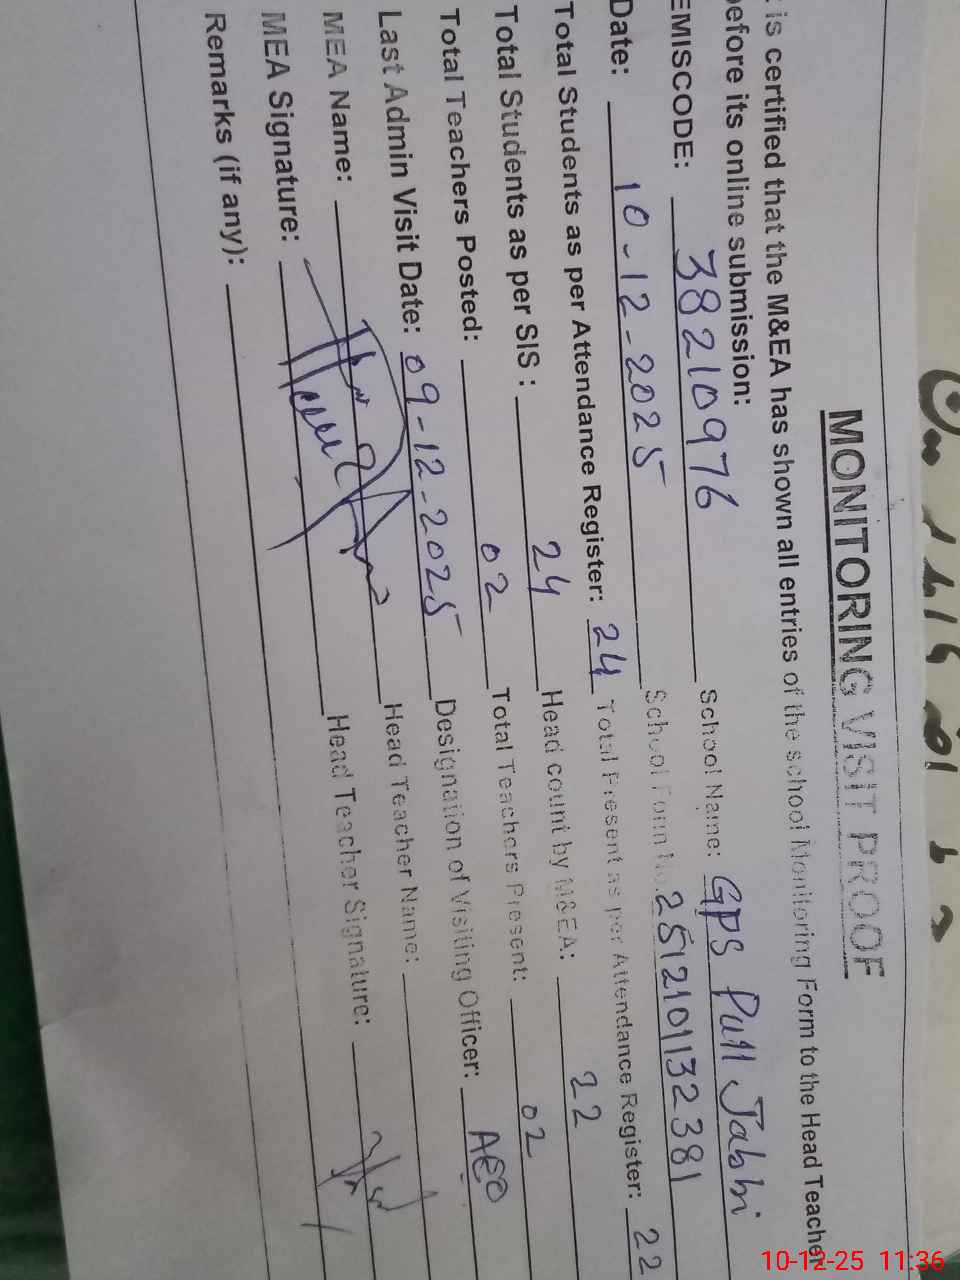 MONITORING VISIT PROOF
is certified that the M&EA has shown all entries of the school Monitoring Form to the Head Teacher
before its online submission:
EMISCODE: 38210976 School Name: GPS Pull Jabbi
Date: 10-12-2025 School Form No. 2512101132381
Total Students as per Attendance Register: 24 Total Present as per Attendance Register: 22
Total Students as per SIS : 24 Head count by M&EA: 22
Total Teachers Posted: 02 Total Teachers Present: 02
Last Admin Visit Date: 09-12-2025 Designation of Visiting Officer: AEO
MEA Name: Head Teacher Name:
MEA Signature: Head Teacher Signature:
Remarks (if any):
10-12-25 11:36